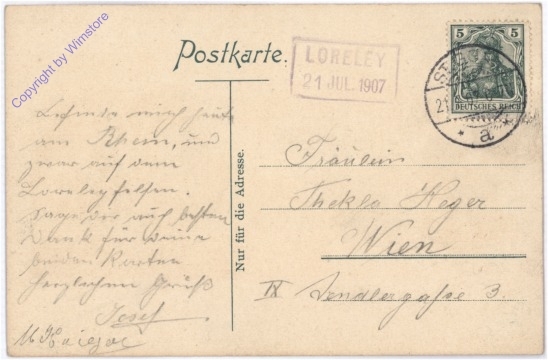 Copyright by Wimstore
Postkarte.
LORELEY
21 JUL. 1907
5 5
DEUTSCHES REICH
a
Befinde mich heute
am Rhein, und
zwar auf dem
Loreleyfelsen.
Sage dir auch besten
Dank für deine
beiden Karten
herzlichen Gruß
Josef
Nur für die Adresse.
Fräulein
Thekla Heger
Wien
IX Sendlergasse 3.